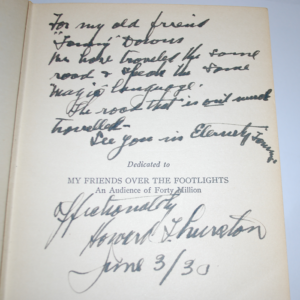 For my old friend
"Tommy" Downs
We have traveled the same
road & speak the same
magic language.
The road that is not much
travelled—
See you in Eternety Tommy
Dedicated to
MY FRIENDS OVER THE FOOTLIGHTS
An Audience of Forty Million
Affictionality
Howard Thurston
June 3/30